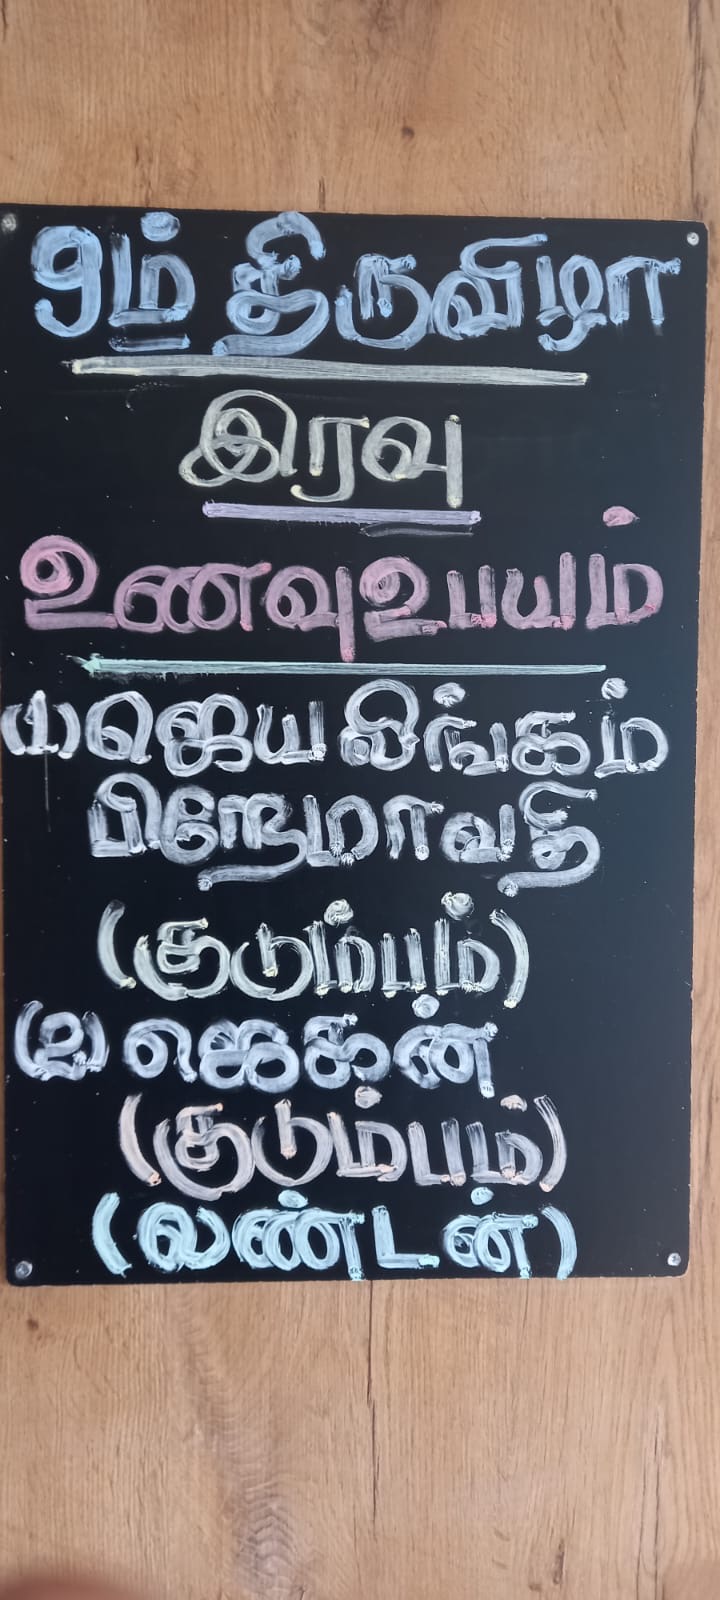 9ம் திருவிழா
இரவு
உணவுஉபயம்
(1) ஜெயலிங்கம்
பிறேமாவதி
(குடும்பம்)
(2) ஜெகன்
(குடும்பம்)
(லண்டன்)